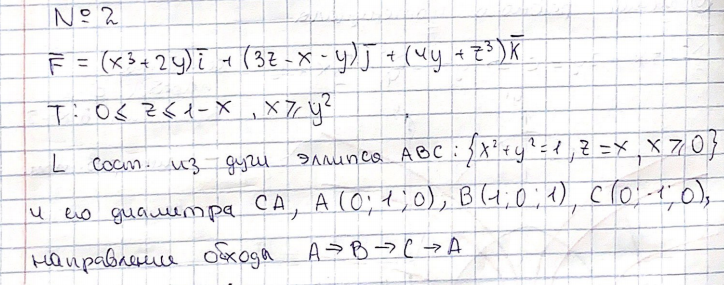 № 2
F̅ = (x³+2y)i̅ + (3z-x-y)j̅ + (4y+z³)k̅
T: 0 ≤ z ≤ 1-x , x ≥ y²
L сост. из дуги эллипса ABC: {x²+y²=1, z=x, x ≥ 0}
и его диаметра CA, A(0; 1; 0), B(1; 0; 1), C(0; -1; 0),
направление обхода A→B→C→A